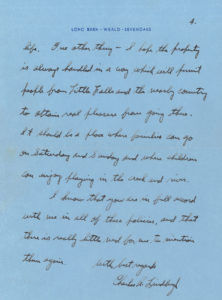 4.
LONG BARN - WEALD - SEVENOAKS
life. One other thing — I hope the property
is always handled in a way which will permit
people from Little Falls and the nearby country
to obtain real pleasure from going there.
It should be a place where families can go
on Saturday and Sunday and where children
can enjoy playing in the creek and river.
I know that you are in full accord
with me in all of these policies, and that
there is really little need for me to mention
them again.
With best regards
Charles A. Lindbergh